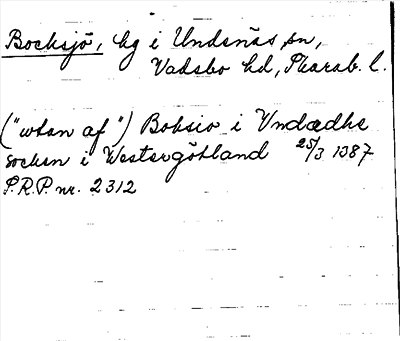 Bocksjö, hg i Undenäs sn,
Vadsbo hd, Skarab. l.
("utan af") Boksio i Vndædhe
socken i Westergötland 25/3 1387
S.R.P. nr. 2312